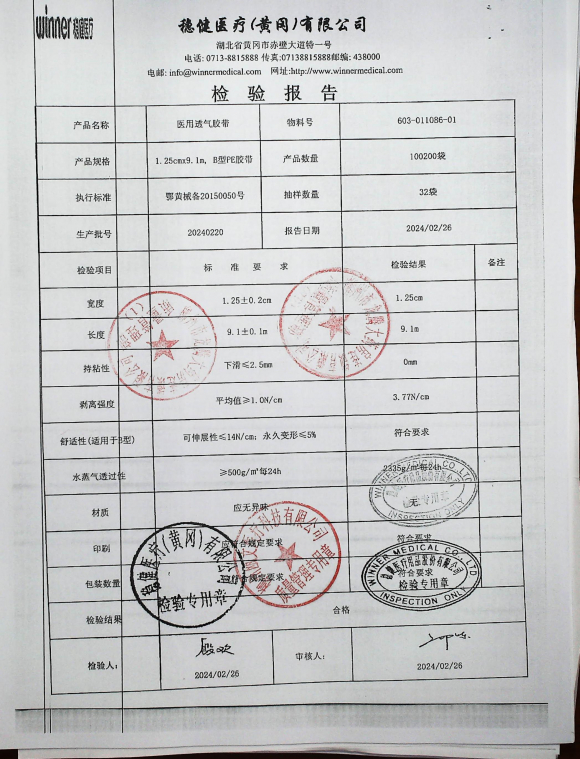 winner 稳健医疗
稳健医疗(黄冈)有限公司
湖北省黄冈市赤壁大道特一号
电话: 0713-8815888 传真:07138815888邮编: 438000
电邮: info@winnermedical.com 网址:http://www.winnermedical.com
检验报告
产品名称 医用透气胶带 物料号 603-011086-01
产品规格 1.25cmx9.1m, B型PE胶带 产品数量 100200袋
执行标准 鄂黄械备20150050号 抽样数量 32袋
生产批号 20240220 报告日期 2024/02/26
检验项目 标准要求 检验结果 备注
宽度 1.25±0.2cm 1.25cm
长度 9.1±0.1m 9.1m
持粘性 下滑≤2.5mm 0mm
剥离强度 平均值≥1.0N/cm 3.77N/cm
舒适性(适用于B型) 可伸展性≤14N/cm; 永久变形≤5% 符合要求
水蒸气透过性 ≥500g/㎡每24h 2335g/㎡每24h
材质 应无异味 无
印刷 应符合规定要求 符合要求
包装数量 应符合规定要求 符合要求
检验结果 合格
检验人: 2024/02/26 审核人: 2024/02/26
稳健医疗(黄冈)有限公司
检验专用章
质量管理专用章
WINNER MEDICAL CO., LTD
稳健医疗用品股份有限公司
检验专用章
INSPECTION ONLY
WINNER MEDICAL CO., LTD
检验专用章
INSPECTION ONLY